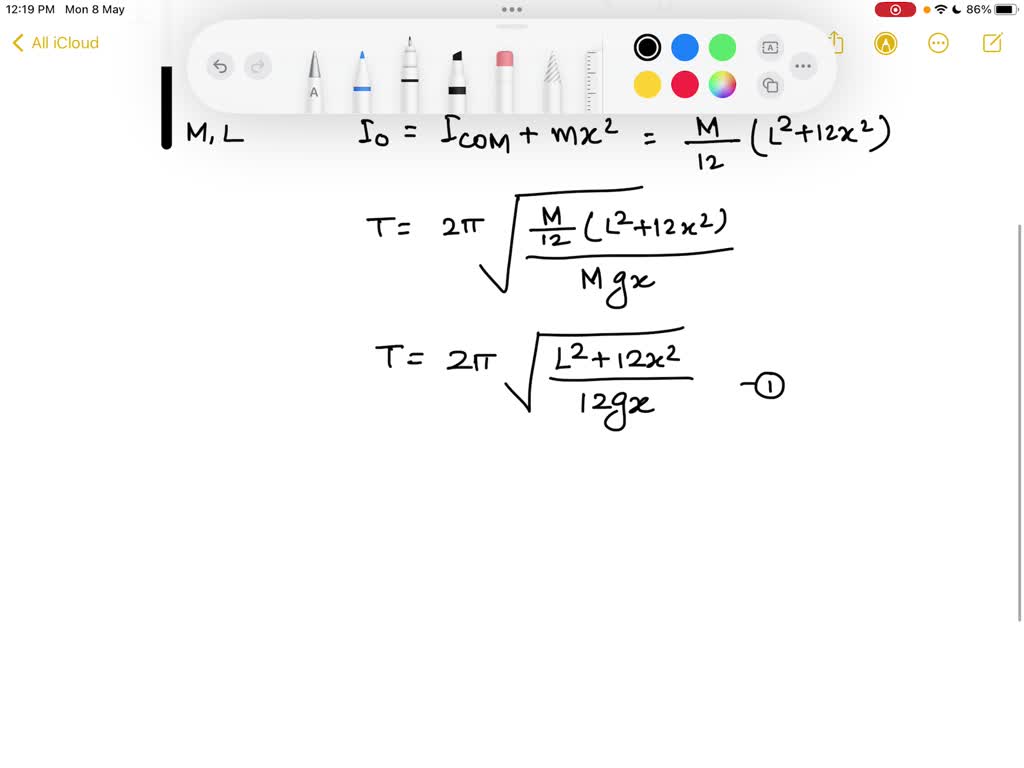 12:19 PM Mon 8 May 86%
All iCloud
A A
M, L I₀ = I_COM + mx² = M/12 (L²+12x²)
T = 2π √(M/12 (L²+12x²) / Mgx)
T = 2π √(L²+12x² / 12gx) -①